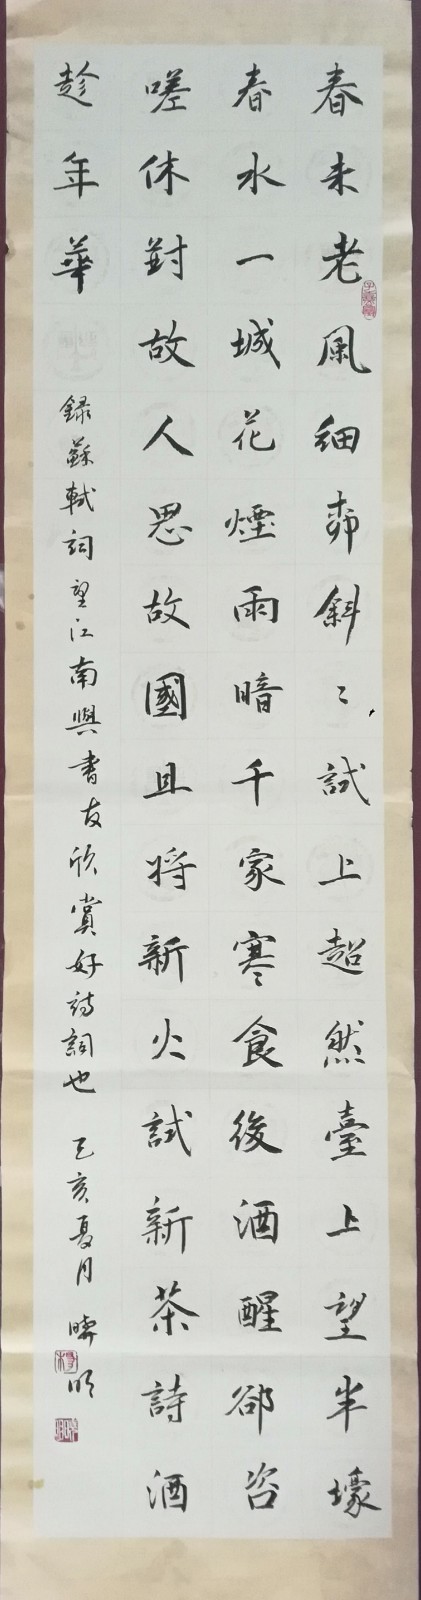 春未老風細柳斜〻試上超然臺上望半壕
春水一城花煙雨暗千家寒食後酒醒卻咨
嗟休對故人思故國且將新火試新茶詩酒
趁年華
錄蘇軾詞望江南與書友欣賞好詩詞也 己亥夏月 明